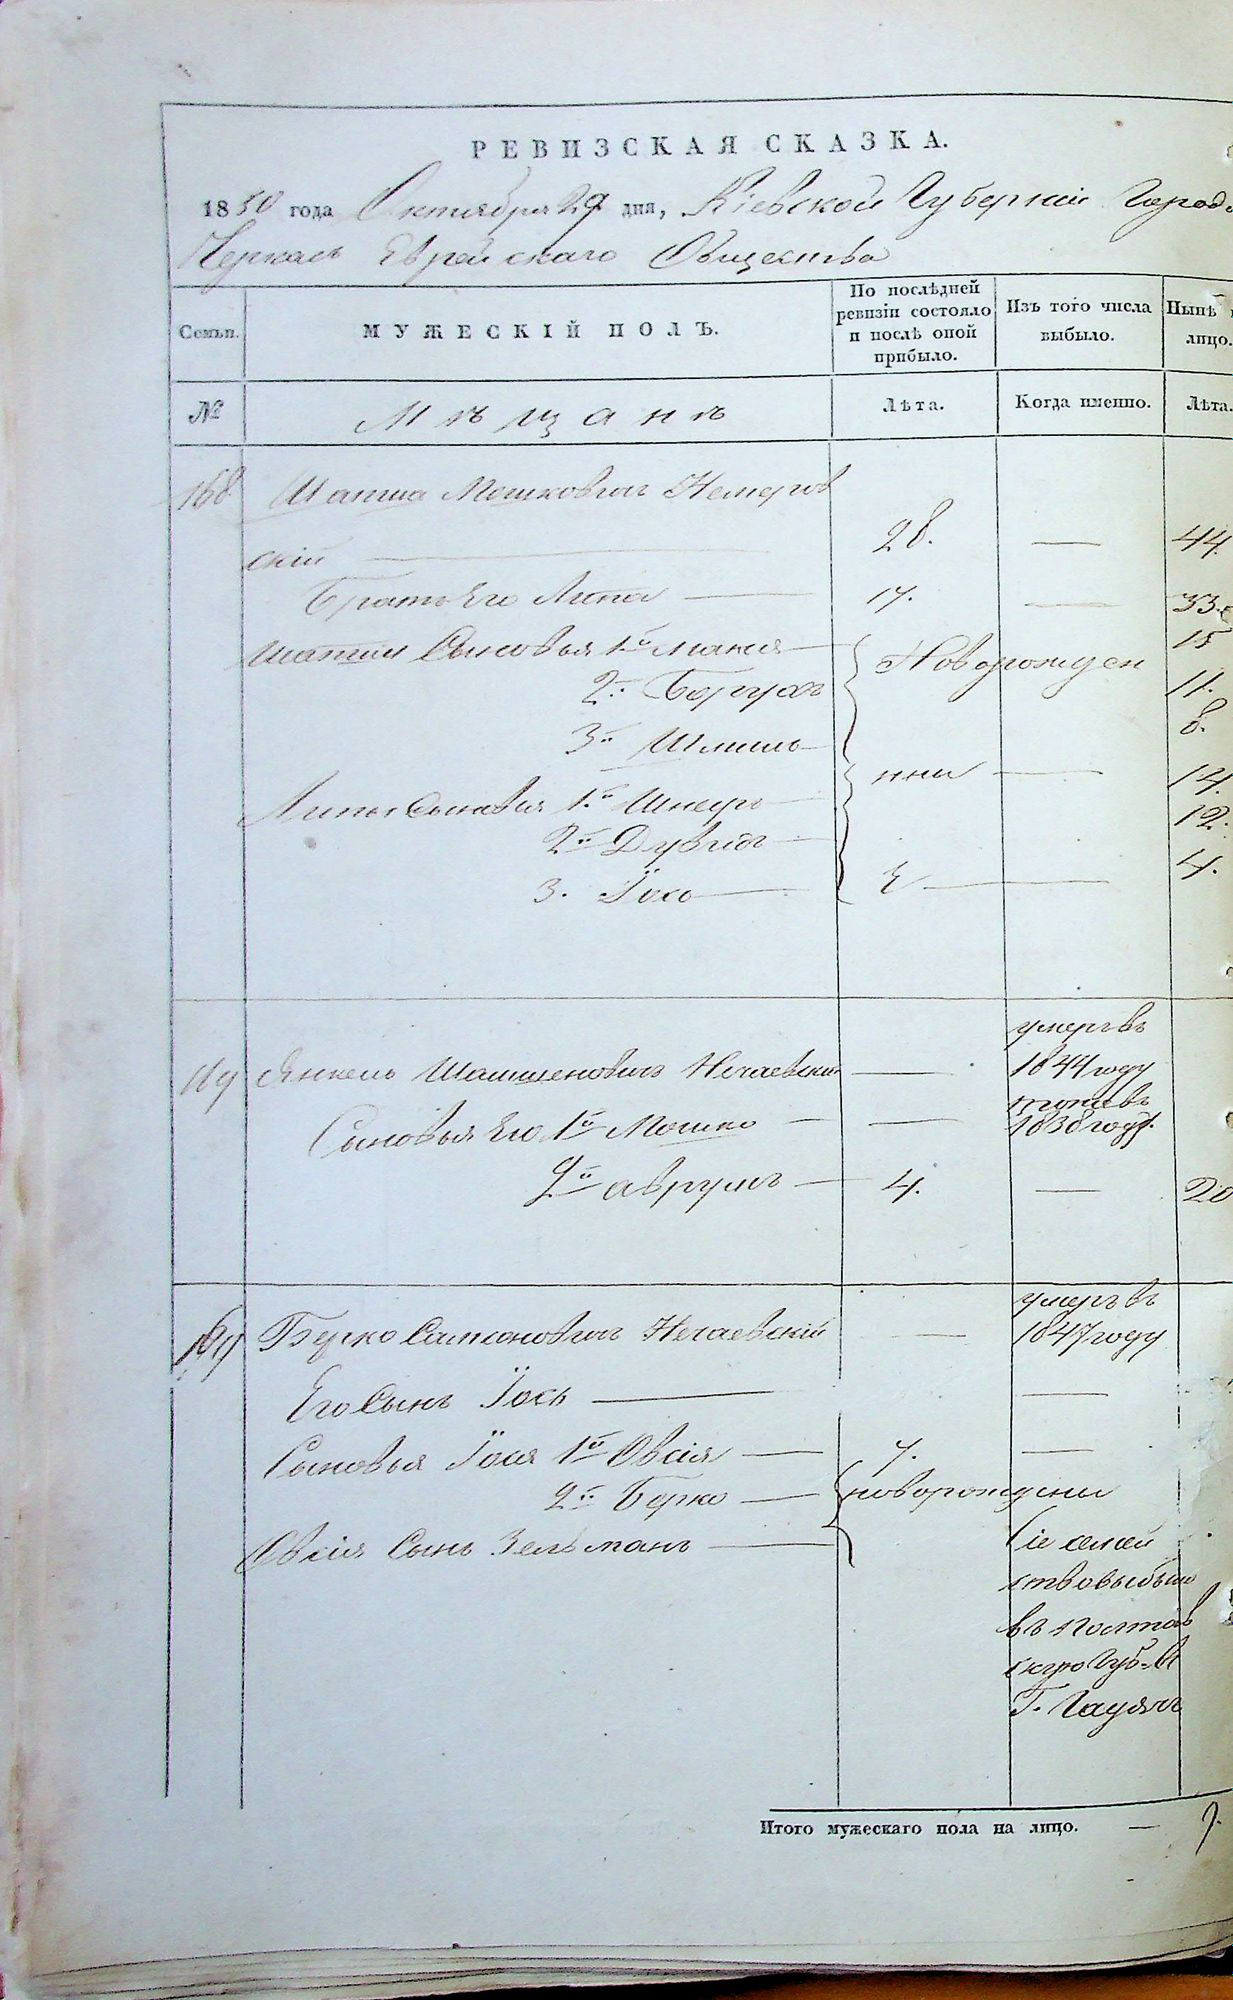 РЕВИЗСКАЯ СКАЗКА.
1850 года Октября 29 дня, Кіевской Губерніи Города
Черкасъ Еврейскаго Общества
Семьи. МУЖЕСКІЙ ПОЛЪ. По послѣдней ревизіи состояло и послѣ оной прибыло. Изъ того числа выбыло. Нынѣ на лицо.
№ Мѣщанъ Лѣта. Когда именно. Лѣта.
168 Шапша Мошковичъ Немеров
скій — 28. — 44.
Братъ Его Липа — 17. — 33.
Шапши Сыновья 1й — Новорожден 15
2й Борухъ 11.
3й Шмиль 8.
нни —
Липы Сыновья 1й Шнеръ 14.
2й Дувидъ — 12.
3. Іось — — 4.
умеръ въ
169 Янкель Шамшеновичъ Нечаевскій — 1844 году
Сыновья Его 1й Мошко — — 1838 году.
2й Аврумъ — 4. — 20
умеръ въ
169 Берко Самсоновичъ Нечаевскій — 1847 году
Его Сынъ Іось — —
Сыновья Іося 1й Овсія — 7. —
2й Берко — новорождени
Овсія Сынъ Зельманъ —
Сіе семей
ство выбыло
въ Полтав
скую Губ. въ
Г. Гадячъ
Итого мужескаго пола на лицо. — 9.